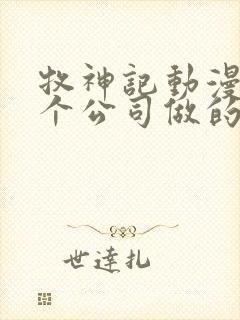 牧神記動漫
个公司做的
世達扎